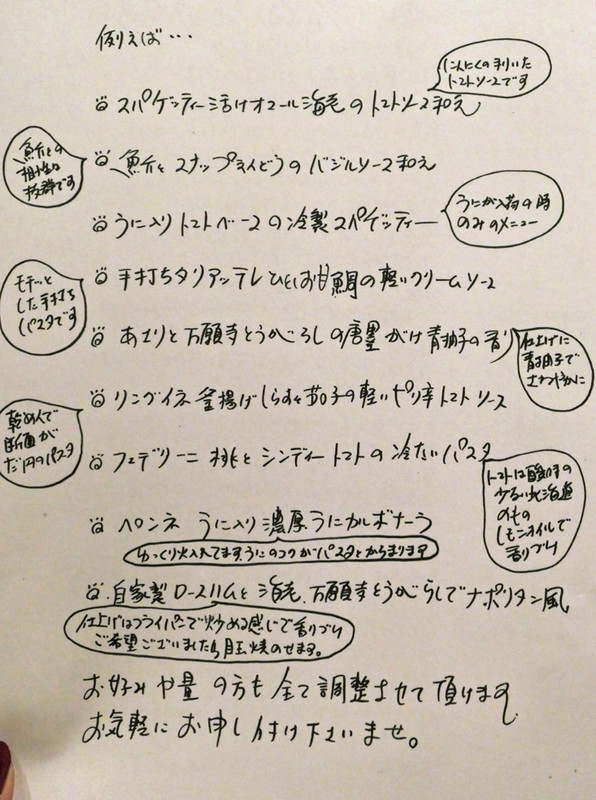 例えば・・・
にんにくの利いた
トマトソースです
スパゲッティー 活けオマール海老のトマトソース和え
魚介との
相性は
抜群です
魚介とスナップえんどうのバジルソース和え
うに入りトマトベースの冷製スパゲッティー
うにが入荷の時
のみのメニュー
モチッと
した手打ち
パスタです
手打ちタリアッテレ 甘鯛の軽いクリームソース
あさりと万願寺とうがらしの唐墨がけ青柚子の香り
仕上げに
青柚子で
さわやかに
乾めんで
断面が
だ円のパスタ
リングイネ 釜揚げしらすと茄子の軽いピリ辛トマトソース
フェデリーニ 桃とシンディートマトの冷たいパスタ
トマトは酸味の
少ない北海道
のもの
レモンオイルで
香りづけ
ペンネ うに入り濃厚うにカルボナーラ
ゆっくり火入れてます。うにのコクがパスタとからまります
自家製ロースハムと海老、万願寺とうがらしでナポリタン風
仕上げはフライパンで炒める感じで香りづけ
ご希望ございましたら目玉焼のせます。
お好みや量の方も全て調整させて頂けます
お気軽にお申し付け下さいませ。